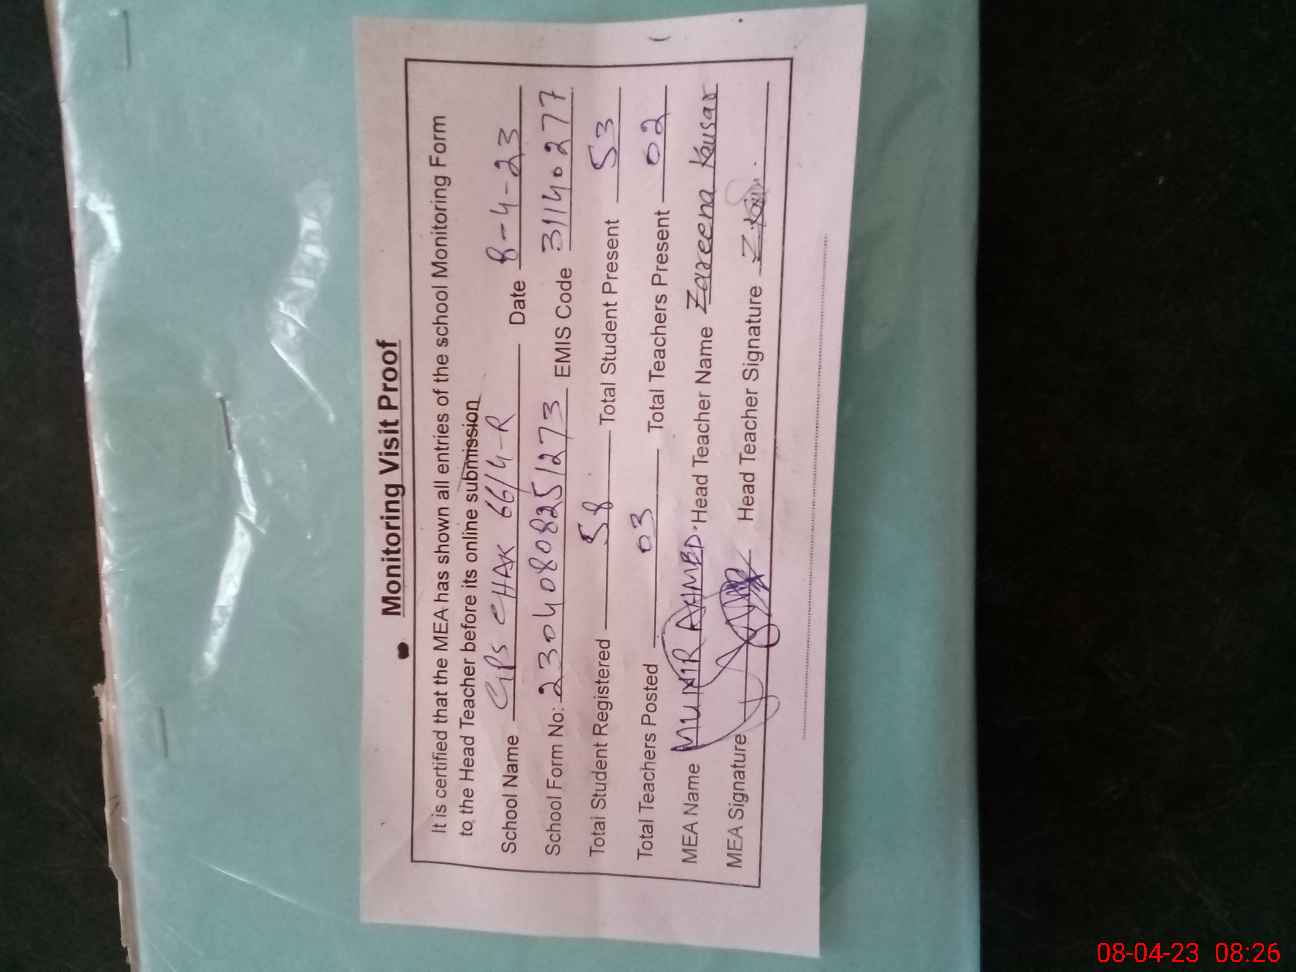 Monitoring Visit Proof
It is certified that the MEA has shown all entries of the school Monitoring Form
to the Head Teacher before its online submission
School Name GPS CHAK 66/4-R Date 8-4-23
School Form No: 23040808251273 EMIS Code 31140277
Total Student Registered 58 Total Student Present 53
Total Teachers Posted 03 Total Teachers Present 02
MEA Name MUNIR AHMED Head Teacher Name Zareena Kousar
MEA Signature Head Teacher Signature
08-04-23 08:26